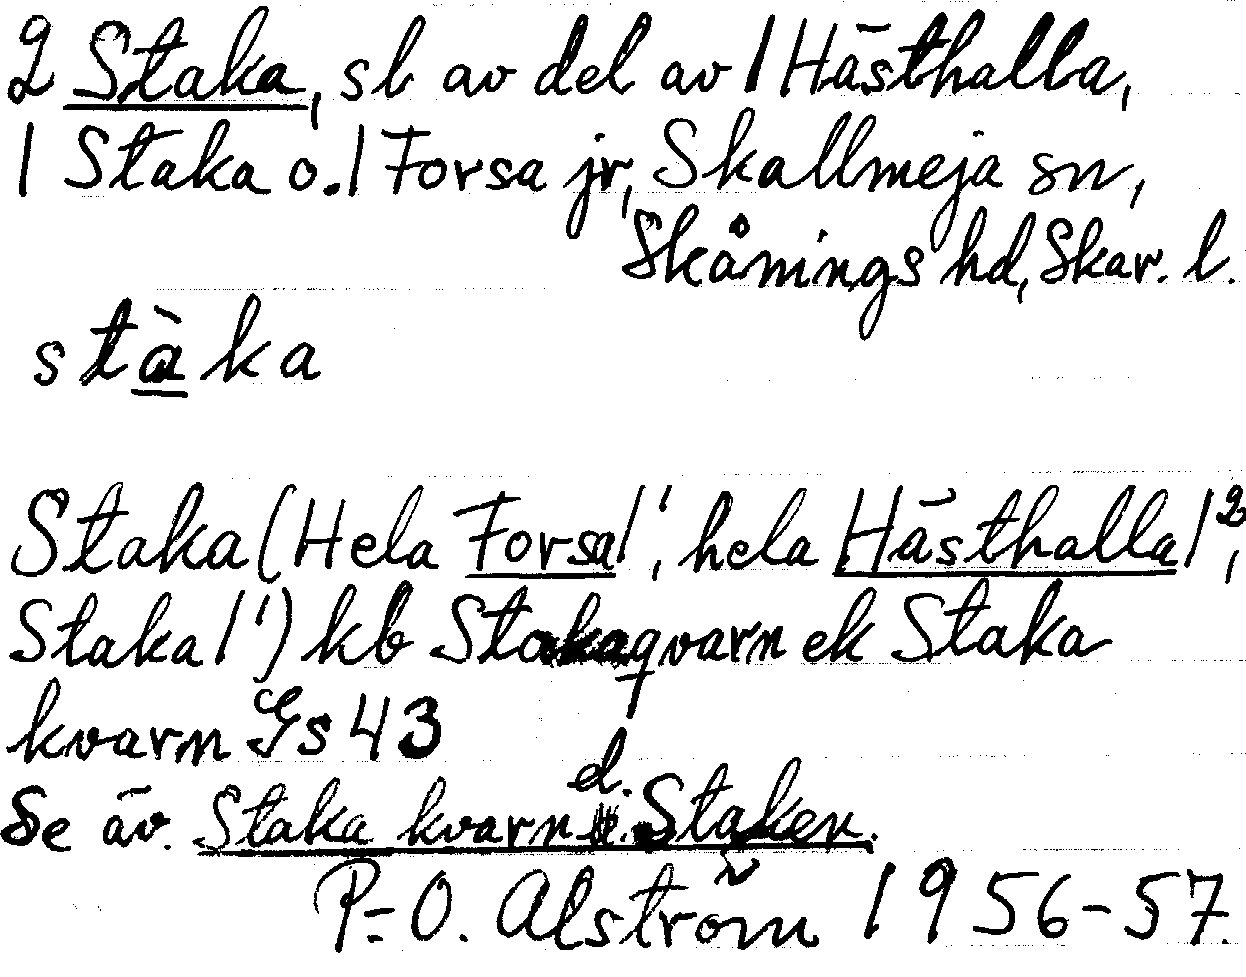 2 Staka, sl av del av 1 Hästhalla,
1 Staka o. 1 Forsa jr, Skallmeja sn,
Skånings hd, Skar. l.
stàka
Staka (Hela Forsa 1¹, hela Hästhalla 1²,
Staka 1¹) kb Stakaqvarn ek Staka
kvarn Gs 43
Se äv. Staka kvarn d. Staken.
P-O. Alström 1956-57.